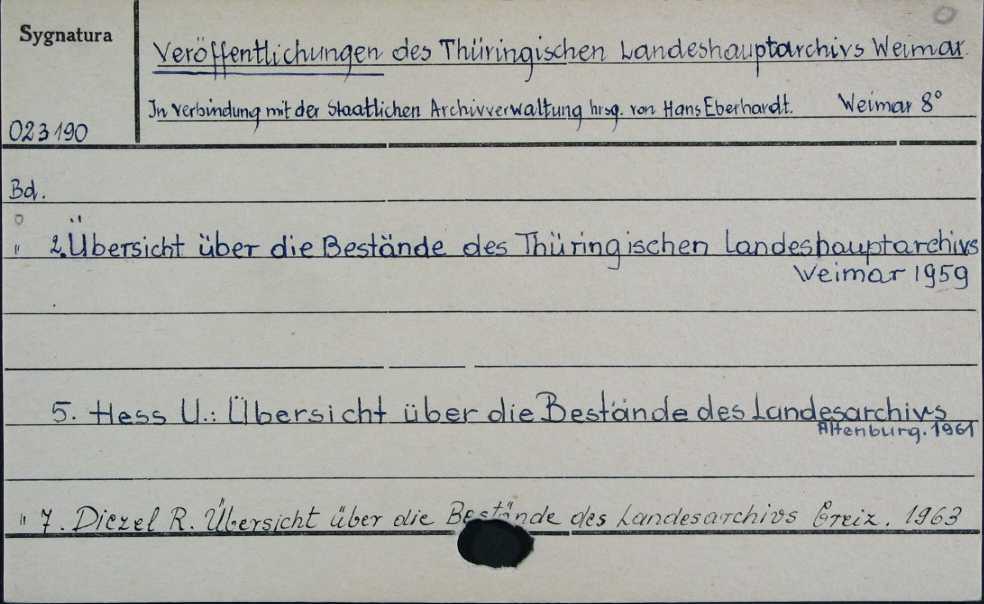 Sygnatura
Veröffentlichungen des Thüringischen Landeshauptarchivs Weimar.
In Verbindung mit der Staatlichen Archivverwaltung hrsg. von Hans Eberhardt. Weimar 8°
023190
Bd.
" 2. Übersicht über die Bestände des Thüringischen Landeshauptarchivs
Weimar 1959
5. Hess U.: Übersicht über die Bestände des Landesarchivs
Altenburg. 1961
" 7. Diezel R. Übersicht über die Bestände des Landesarchivs Greiz. 1963